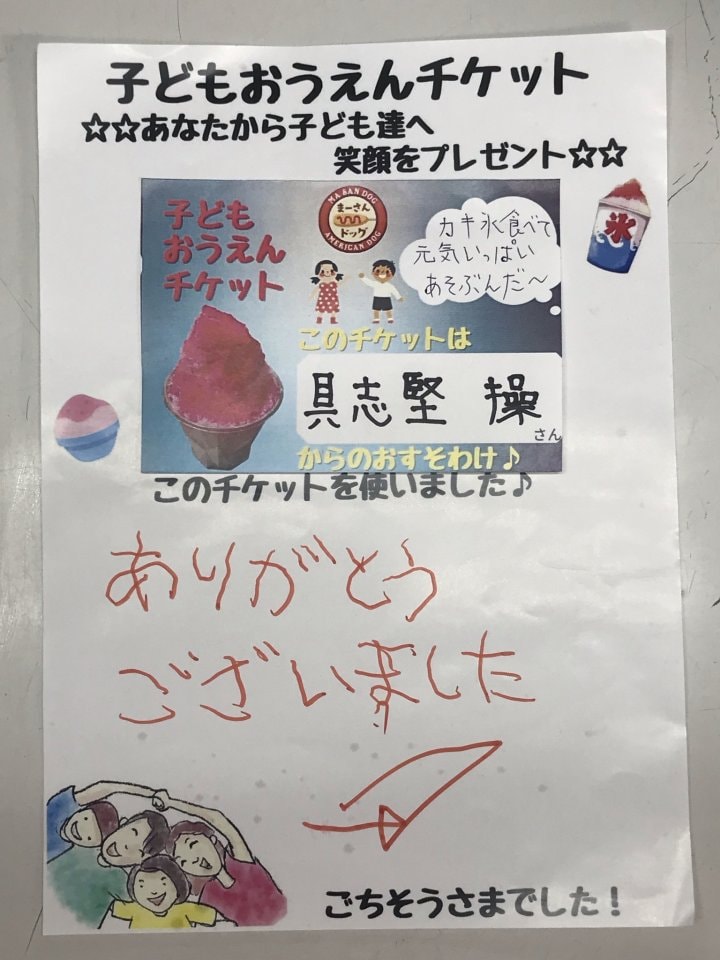 子どもおうえんチケット
☆☆あなたから子ども達へ
笑顔をプレゼント☆☆
子ども
おうえん
チケット
MA SAN DOG
まーさん
ドッグ
AMERICAN DOG
カキ氷食べて
元気いっぱい
あそぶんだ〜
氷
このチケットは
具志堅 操
さん
からのおすそわけ♪
このチケットを使いました♪
ありがとう
ございました
ごちそうさまでした!